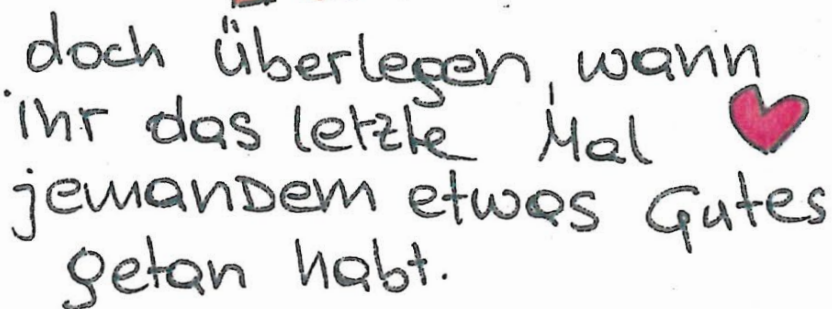 doch überlegen, wann
ihr das letzte Mal
jemandem etwas Gutes
getan habt.